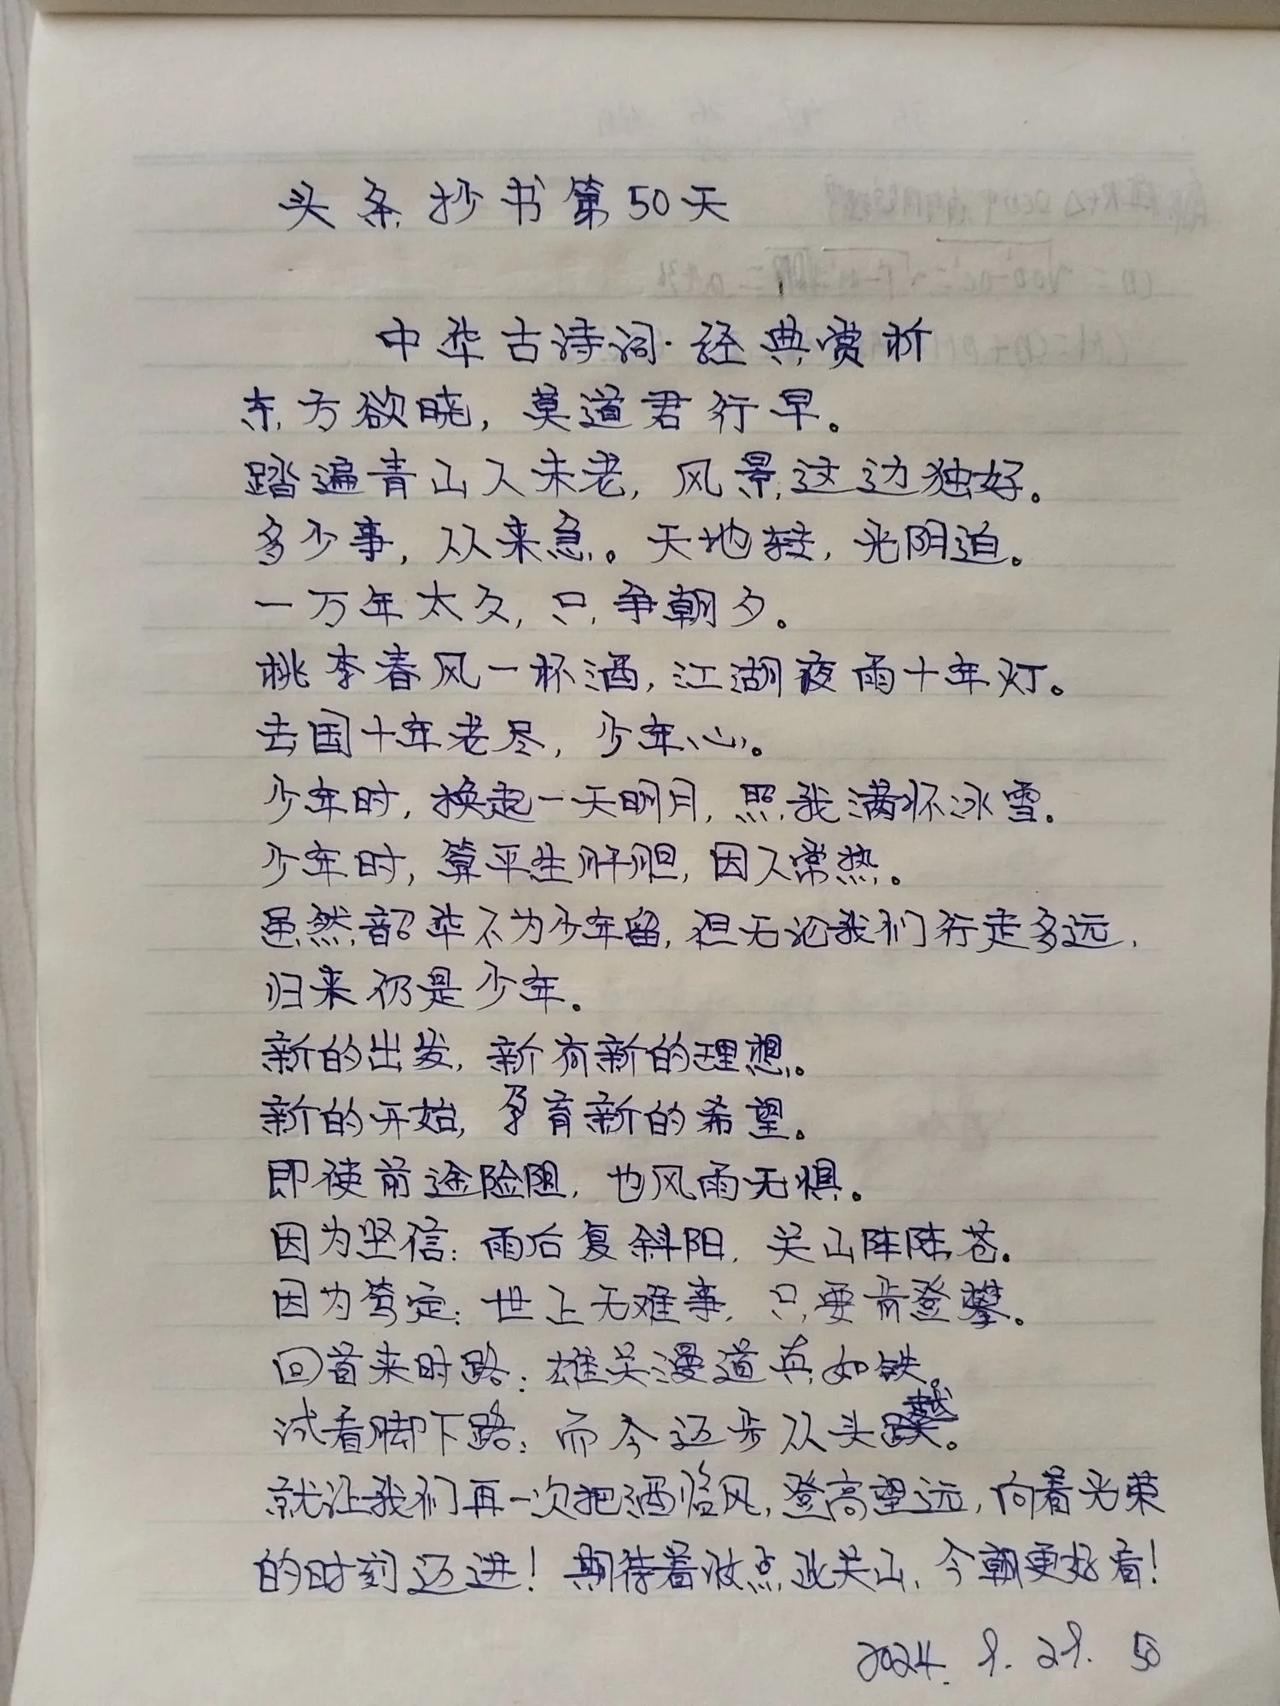 头条抄书第50天
中华古诗词·经典赏析
东方欲晓，莫道君行早。
踏遍青山人未老，风景这边独好。
多少事，从来急。天地转，光阴迫。
一万年太久，只争朝夕。
桃李春风一杯酒，江湖夜雨十年灯。
去国十年老尽，少年心。
少年时，换起一天明月，照我满怀冰雪。
少年时，算平生肝胆，因人常热。
虽然韶华不为少年留，但无论我们行走多远，
归来仍是少年。
新的出发，新有新的理想。
新的开始，孕育新的希望。
即使前途险阻，也风雨无惧。
因为坚信：雨后复斜阳，关山阵阵苍。
因为笃定：世上无难事，只要肯登攀。
回首来时路：雄关漫道真如铁。
试看脚下路：而今迈步从头越。
就让我们再一次把酒临风，登高望远，向着光荣
的时刻迈进！期待着收点此关山，今朝更好看！
2024. 9. 29. 50